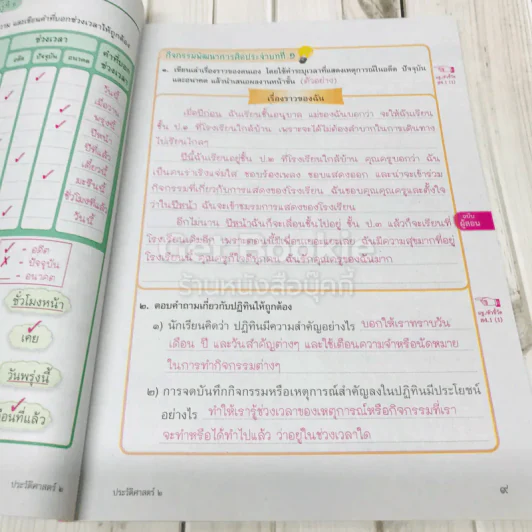 าม และเขียนคำที่บอกช่วงเวลาให้ถูกต้อง
ช่วงเวลา
คำที่บอกช่วงเวลา
อดีต ปัจจุบัน อนาคต
วันนี้
เมื่อวาน
พรุ่งนี้
ปีหน้า
ปีที่แล้ว
เดี๋ยวนี้
มะรืนนี้
ชั่วโมงที่แล้ว
วันนี้
✓ - อดีต
✗ - ปัจจุบัน
- อนาคต
ชั่วโมงหน้า
เคย
วันพรุ่งนี้
ือนที่แล้ว
ประวัติศาสตร์ ๒
กิจกรรมพัฒนาการคิดประจำบทที่ ๑
๑. เขียนเล่าเรื่องราวของตนเอง โดยใช้คำระบุเวลาที่แสดงเหตุการณ์ในอดีต ปัจจุบัน
และอนาคต แล้วนำเสนอผลงานหน้าชั้น (ตัวอย่าง)
เรื่องราวของฉัน
เมื่อปีก่อน ฉันเรียนชั้นอนุบาล แม่ของฉันบอกว่า จะให้ฉันเรียน
ชั้น ป.๑ ที่โรงเรียนใกล้บ้าน เพราะจะได้ไม่ต้องลำบากในการเดินทาง
ไปเรียนไกลๆ
ปีนี้ฉันเรียนอยู่ชั้น ป.๒ ที่โรงเรียนใกล้บ้าน คุณครูบอกว่า ฉัน
เป็นคนร่าเริงแจ่มใส ชอบร้องเพลง ชอบแสดงออก และน่าจะเข้าร่วม
กิจกรรมที่เกี่ยวกับการแสดงของโรงเรียน ฉันขอบคุณคุณครูและตั้งใจ
ว่าในปีหน้า ฉันจะเข้าชมรมการแสดงของโรงเรียน
อีกไม่นาน ปีหน้าฉันก็จะเลื่อนชั้นไปอยู่ ชั้น ป.๓ แล้วก็จะเรียนที่
โรงเรียนเดิมอีก เพราะตอนนี้มีเพื่อนเยอะแยะเลย ฉันมีความสุขมากที่อยู่
โรงเรียนนี้ คุณครูก็ใจดีทุกคน ฉันรักคุณครูของฉันมาก
ร้านหนังสือบุ๊คกี้
ฉบับ
ผู้สอน
๒. ตอบคำถามเกี่ยวกับปฏิทินให้ถูกต้อง
๑) นักเรียนคิดว่า ปฏิทินมีความสำคัญอย่างไร บอกให้เราทราบวัน
เดือน ปี และวันสำคัญต่างๆ และใช้เตือนความจำหรือนัดหมาย
ในการทำกิจกรรมต่างๆ
๒) การจดบันทึกกิจกรรมหรือเหตุการณ์สำคัญลงในปฏิทินมีประโยชน์
อย่างไร ทำให้เรารู้ช่วงเวลาของเหตุการณ์หรือกิจกรรมที่เรา
จะทำหรือได้ทำไปแล้ว ว่าอยู่ในช่วงเวลาใด
ประวัติศาสตร์ ๒
๙